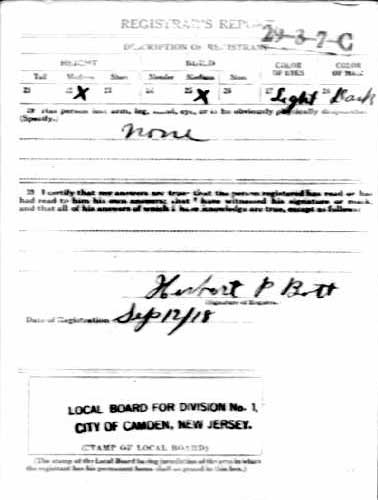 REGISTRAR'S REPORT
29-3-7-C
DESCRIPTION OF REGISTRANT
HEIGHT BUILD COLOR OF EYES COLOR OF HAIR
Tall Medium Short Slender Medium Stout
21 22 X 23 24 25 X 26 27 Light 28 Dark
29 Has person lost arm, leg, hand, eye, or is he obviously physically disqualified?
(Specify.)
None
30 I certify that my answers are true; that the person registered has read or has
had read to him his own answers; that I have witnessed his signature or mark,
and that all of his answers of which I have knowledge are true, except as follows:
Herbert P Bott
(Signature of Registrar)
Date of Registration Sep 12/18
LOCAL BOARD FOR DIVISION No. 1,
CITY OF CAMDEN, NEW JERSEY.
(STAMP OF LOCAL BOARD)
(The stamp of the Local Board having jurisdiction of the area in which
the registrant has his permanent home shall be placed in this box.)